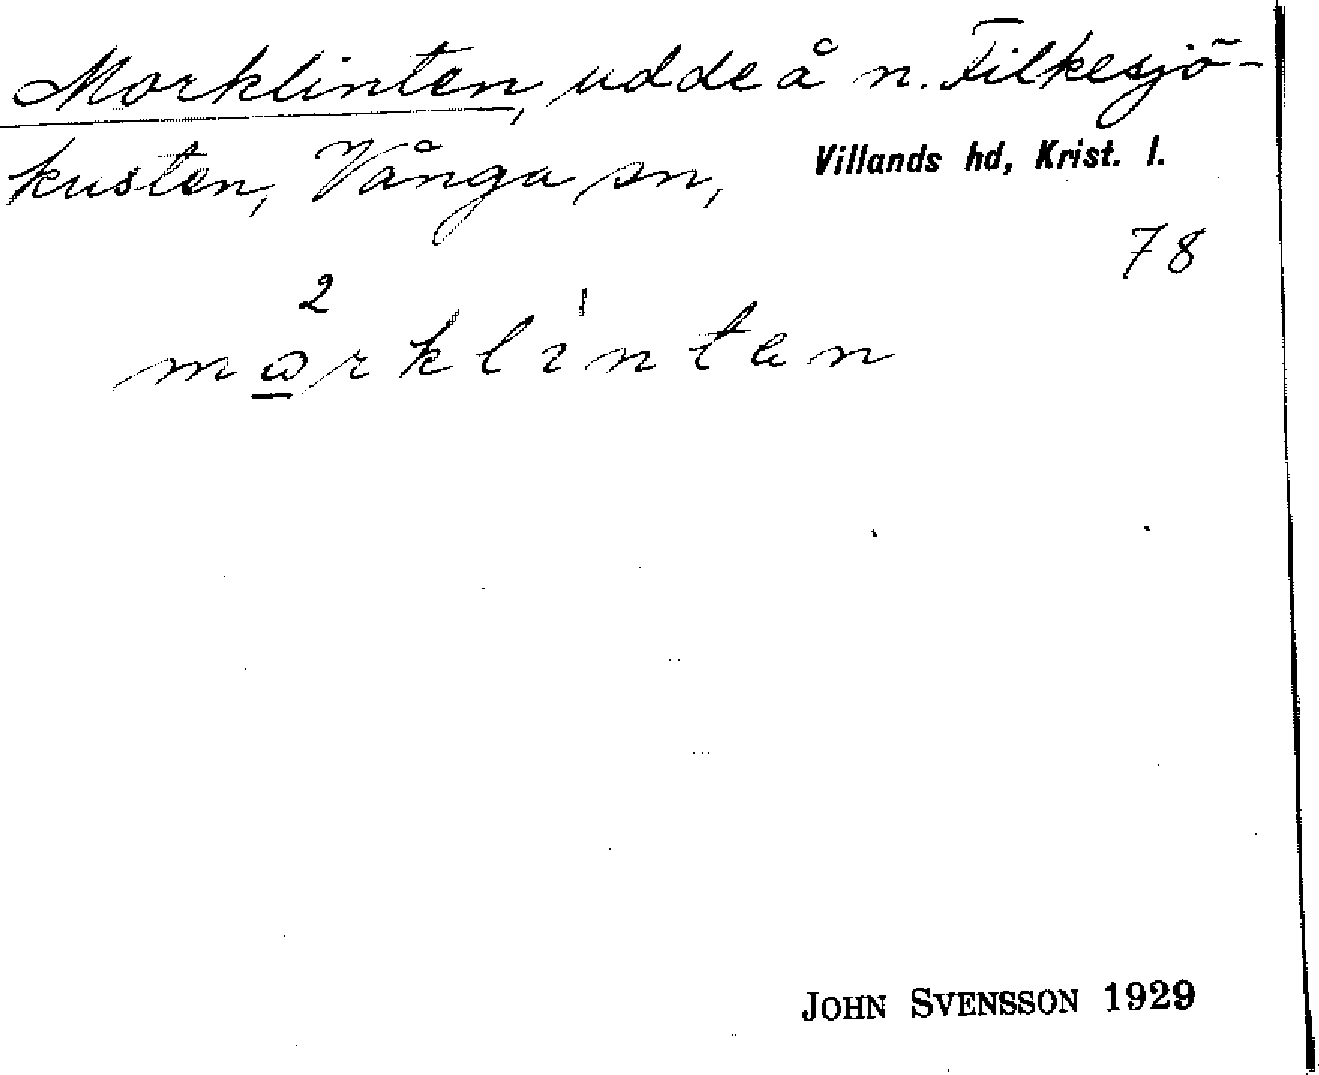 Morklinten, udde å n. Filkesjö-
kusten, Vånga sn, Villands hd, Krist. l.
78
2 ı
mωrklinten
JOHN SVENSSON 1929